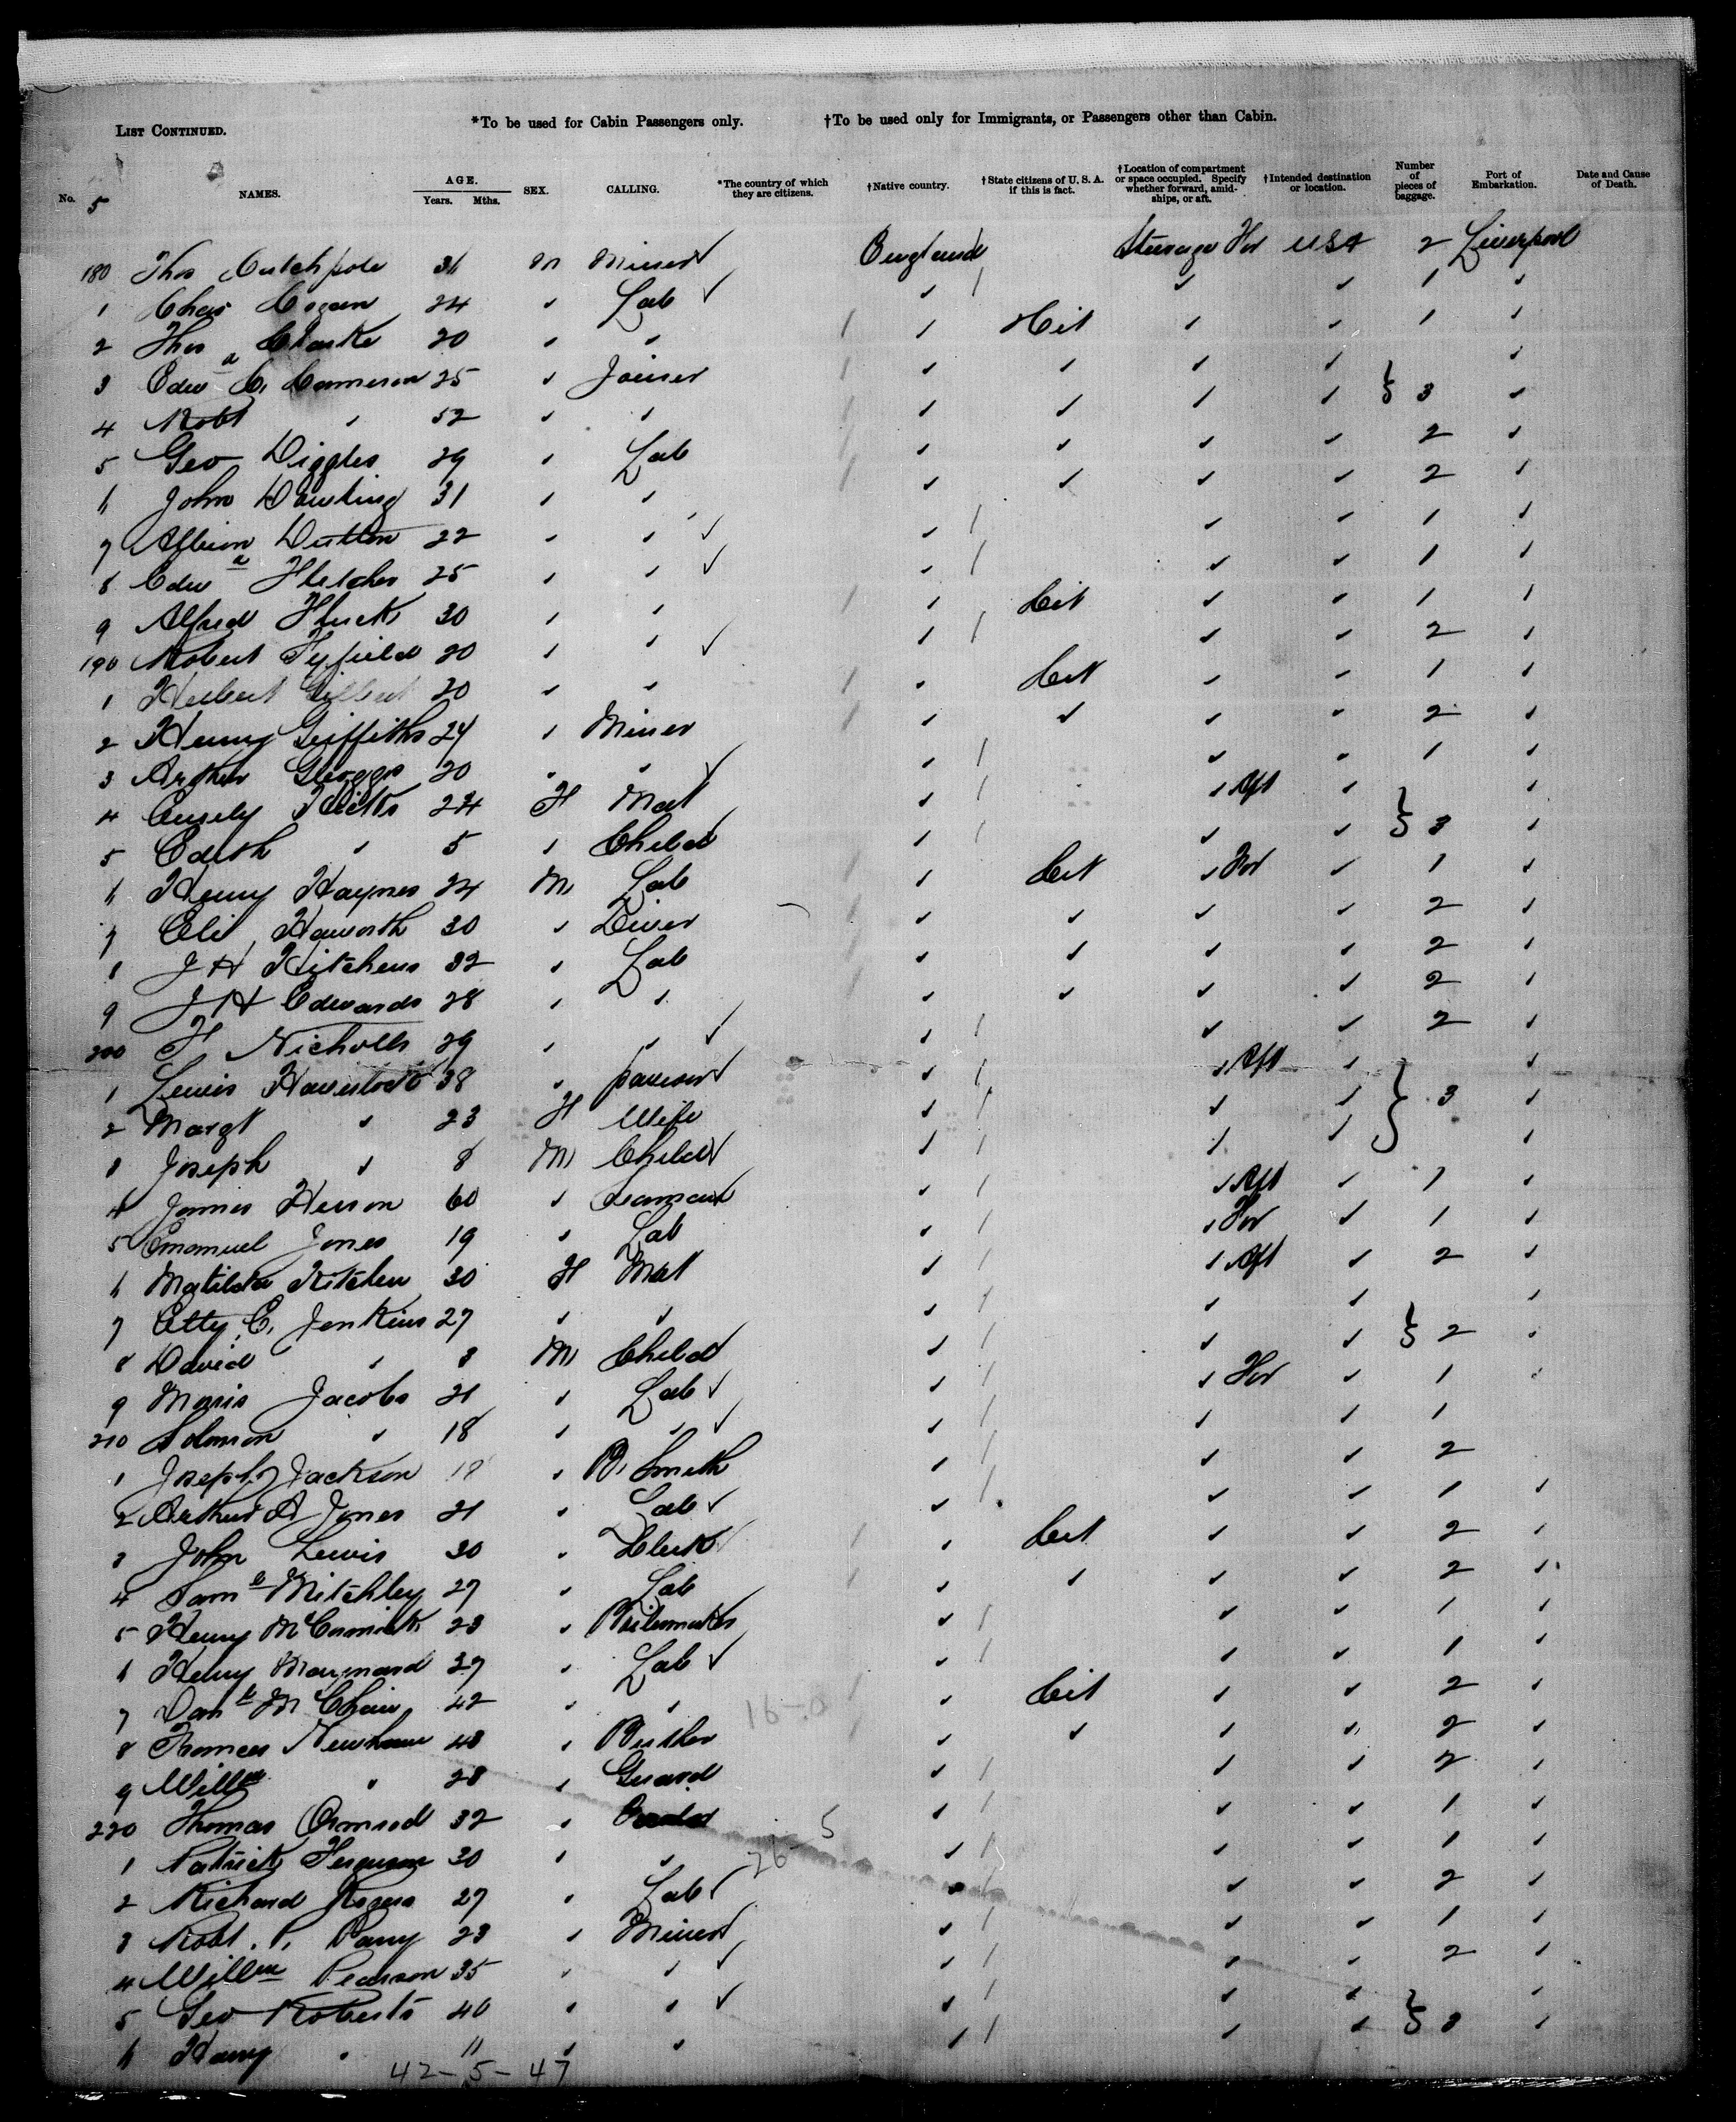 LIST CONTINUED. *To be used for Cabin Passengers only. †To be used only for Immigrants, or Passengers other than Cabin.
No. 5 NAMES. AGE. Years. Mths. SEX. CALLING. *The country of which they are citizens. †Native country. †State citizens of U. S. A. if this is fact. †Location of compartment or space occupied. Specify whether forward, amidships, or aft. †Intended destination or location. Number of pieces of baggage. Port of Embarkation. Date and Cause of Death.
180 Thos Catchpole 31 M Miner ✓ England Steerage For USA 2 Liverpool
1 Chas Cogan 24 " Lab ✓ " / " " 1 "
2 Thos Clarke 20 " " / " Cit " " 1 "
3 Edwd C. Cameron 25 " Joiner / " " " " "
4 Robt " 52 " " / " " " " } 3 "
5 Geo Diggles 29 " Lab / " " " " 2 "
6 John Dowling 31 " " / " " " " 2 "
7 Albion Dutton 22 " " ✓ " / " " 1 "
8 Edwd Fletcher 25 " " ✓ " / " " 1 "
9 Alfred Fluck 30 " " / " Cit " " 1 "
190 Robert Fyfield 20 " " ✓ " / " " 2 "
1 Herbert Gilbert 20 " " / " Cit " " 1 "
2 Henry Griffiths 24 " Miner / " " " " 2 "
3 Arthur 20 " " ✓ " / " " 1 "
4 Hicks 24 F Mat " / " Aft " "
5 Edith " 5 " Child " / " " } 3 "
6 Henry Haynes 24 M Lab / " Cit " For " 1 "
7 Eli Haworth 30 " / " " " " 2 "
8 J H Kitchens 32 " Lab / " " " " 2 "
9 J H Edwards 28 " " / " " " " 2 "
200 F Nicholls 29 " " ✓ " / " " 2 "
1 Lewis Haverlock 38 " " / " Aft "
2 Margt " 23 F Wife " / " " } 3 "
3 Joseph " 8 M Child ✓ " / " " "
4 James Herron 60 " Seaman " / " Aft " 1 "
5 Emanuel Jones 19 " Lab " / " For " 1 "
6 Matilda Kitchen 30 F Mat " / " Aft " 2 "
7 Etty C. Jenkins 27 " " " / " " "
8 David " 3 M Child " / " " } 2 "
9 Morris Jacobs 21 " Lab ✓ " / " For " 1 "
210 Solomon " 18 " " ✓ " / " " 1
1 Joseph Jackson 18 " B. Smith " / " " 2
2 Arthur A Jones 21 " Lab ✓ " / " " 1 "
3 John Lewis 30 " Clerk / " Cit " " 2 "
4 Saml Mitchley 27 " Lab / " " " " 2 "
5 Henry McCormick 23 " Boilermaker " / " " 1 "
6 Henry Maynard 27 " Lab ✓ " / " " 1 "
7 Danl 42 " " / " Cit " " 2 "
16-0
8 Thomas Newham 43 " Butler / " " " " 2 "
9 Willm " 28 " Guard " / " " 2 "
220 Thomas Ormrod 32 " " / " " 1 "
5
1 Patrick Ferguson 30 " " " / " " 1 "
26
2 Richard Rogers 27 " Lab ✓ " / " " 2 "
3 Robt. P. Parry 23 " Miner ✓ " / " " 1 "
4 Willm Pearson 35 " " ✓ " / " " 2 "
5 Geo Roberts 40 " " ✓ " / " " "
6 Harry " 11 " " " / " " } 3 "
42-5-47